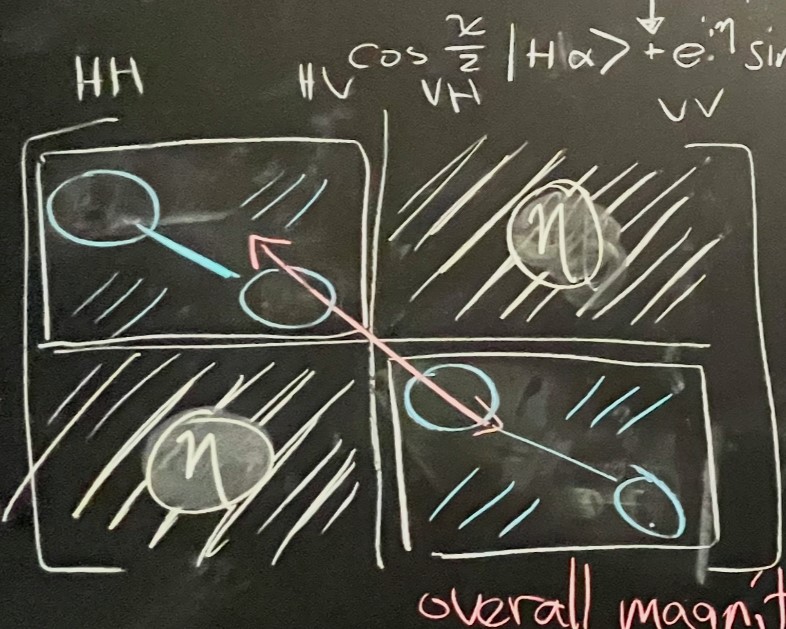 cos χ/2 |H α> + e^iη sin
HH HV VH VV
η
η
overall magnit